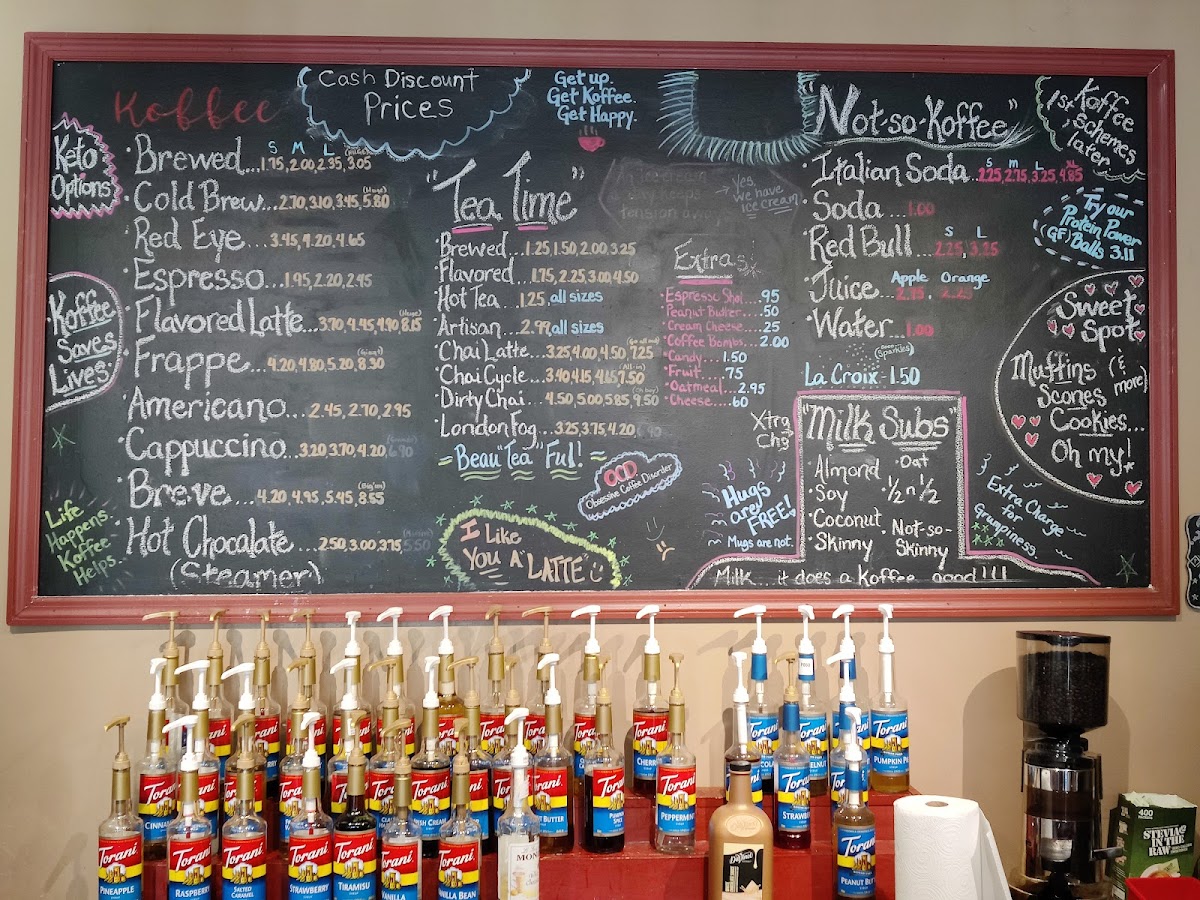 Keto
Options
Koffee
Saves
Lives
Life
Happens.
Koffee
Helps.
Koffee
S M L (HUGE)
Brewed...1.75, 2.00, 2.35, 3.05
(Huge)
Cold Brew...2.70, 3.10, 3.45, 5.80
Red Eye....3.45, 4.20, 4.65
Espresso....1.95, 2.20, 2.45
(Huge)
Flavored Latte...3.70, 4.45, 4.90, 8.15
Frappe....4.20, 4.80, 5.20, 8.30
Americano...2.45, 2.70, 2.95
Cappuccino...3.20, 3.70, 4.20, 6.90
(Big'un)
Breve...4.20, 4.95, 5.45, 8.55
Hot Chocalate...2.50, 3.00, 3.75, 5.50
(Steamer)
Cash Discount
Prices
Get up.
Get Koffee.
Get Happy.
"Tea Time"
Brewed...1.25, 1.50, 2.00, 3.25
Flavored...1.75, 2.25, 3.00, 4.50
Hot Tea...1.25, all sizes
Artisan...2.99 all sizes
Chai Latte...3.25, 4.00, 4.50, 7.25
(All-in)
Chai Cycle...3.90, 4.15, 4.65, 7.50
Dirty Chai....4.50, 5.00, 5.85, 9.50
London Fog...3.25, 3.75, 4.20, 6.90
Beau"Tea"Ful!
OCD
Obsessive Coffee Disorder
I Like
You A "LATTE"
tension away
Yes,
we have
ice cream
Extras
Espresso Shot....95
Peanut Butter....50
Cream Cheese....25
Coffee Bombs...2.00
Candy...1.50
Fruit....75
Oatmeal...2.95
Cheese....60
Xtra
Chg
Hugs
are
FREE!
Mugs are not.
"Not-so-Koffee"
S M L XL
Italian Soda...2.25, 2.75, 3.25, 4.85
Soda...1.00
S L
Red Bull...2.25, 3.25
Apple Orange
Juice...2.25, 2.25
Water...1.00
(Sparkles)
La Croix-1.50
"Milk Subs"
Almond
Soy
Coconut
Skinny
Oat
½ n ½
Not-so-
Skinny
Milk...it does a Koffee good!!!
1st Koffee
Schemes
later
Try our
Protein Power
(GF) Balls 3.11
Sweet
Spot
Muffins (&
Scones more)
Cookies...
Oh my!
Extra Charge
for
Grumpiness
Torani
CHERRY
Torani
PUMPKIN PIE
Torani
CINNAMON
Torani
PUMPKIN
SPICE
Torani
PEPPERMINT
Torani
STRAWBERRY
Torani
PINEAPPLE
Torani
RASPBERRY
Torani
SALTED
CARAMEL
Torani
STRAWBERRY
Torani
TIRAMISU
Torani
VANILLA
Torani
VANILLA BEAN
DaVinci
Torani
PEANUT BUTTER
400
STEVIA
IN THE
RAW